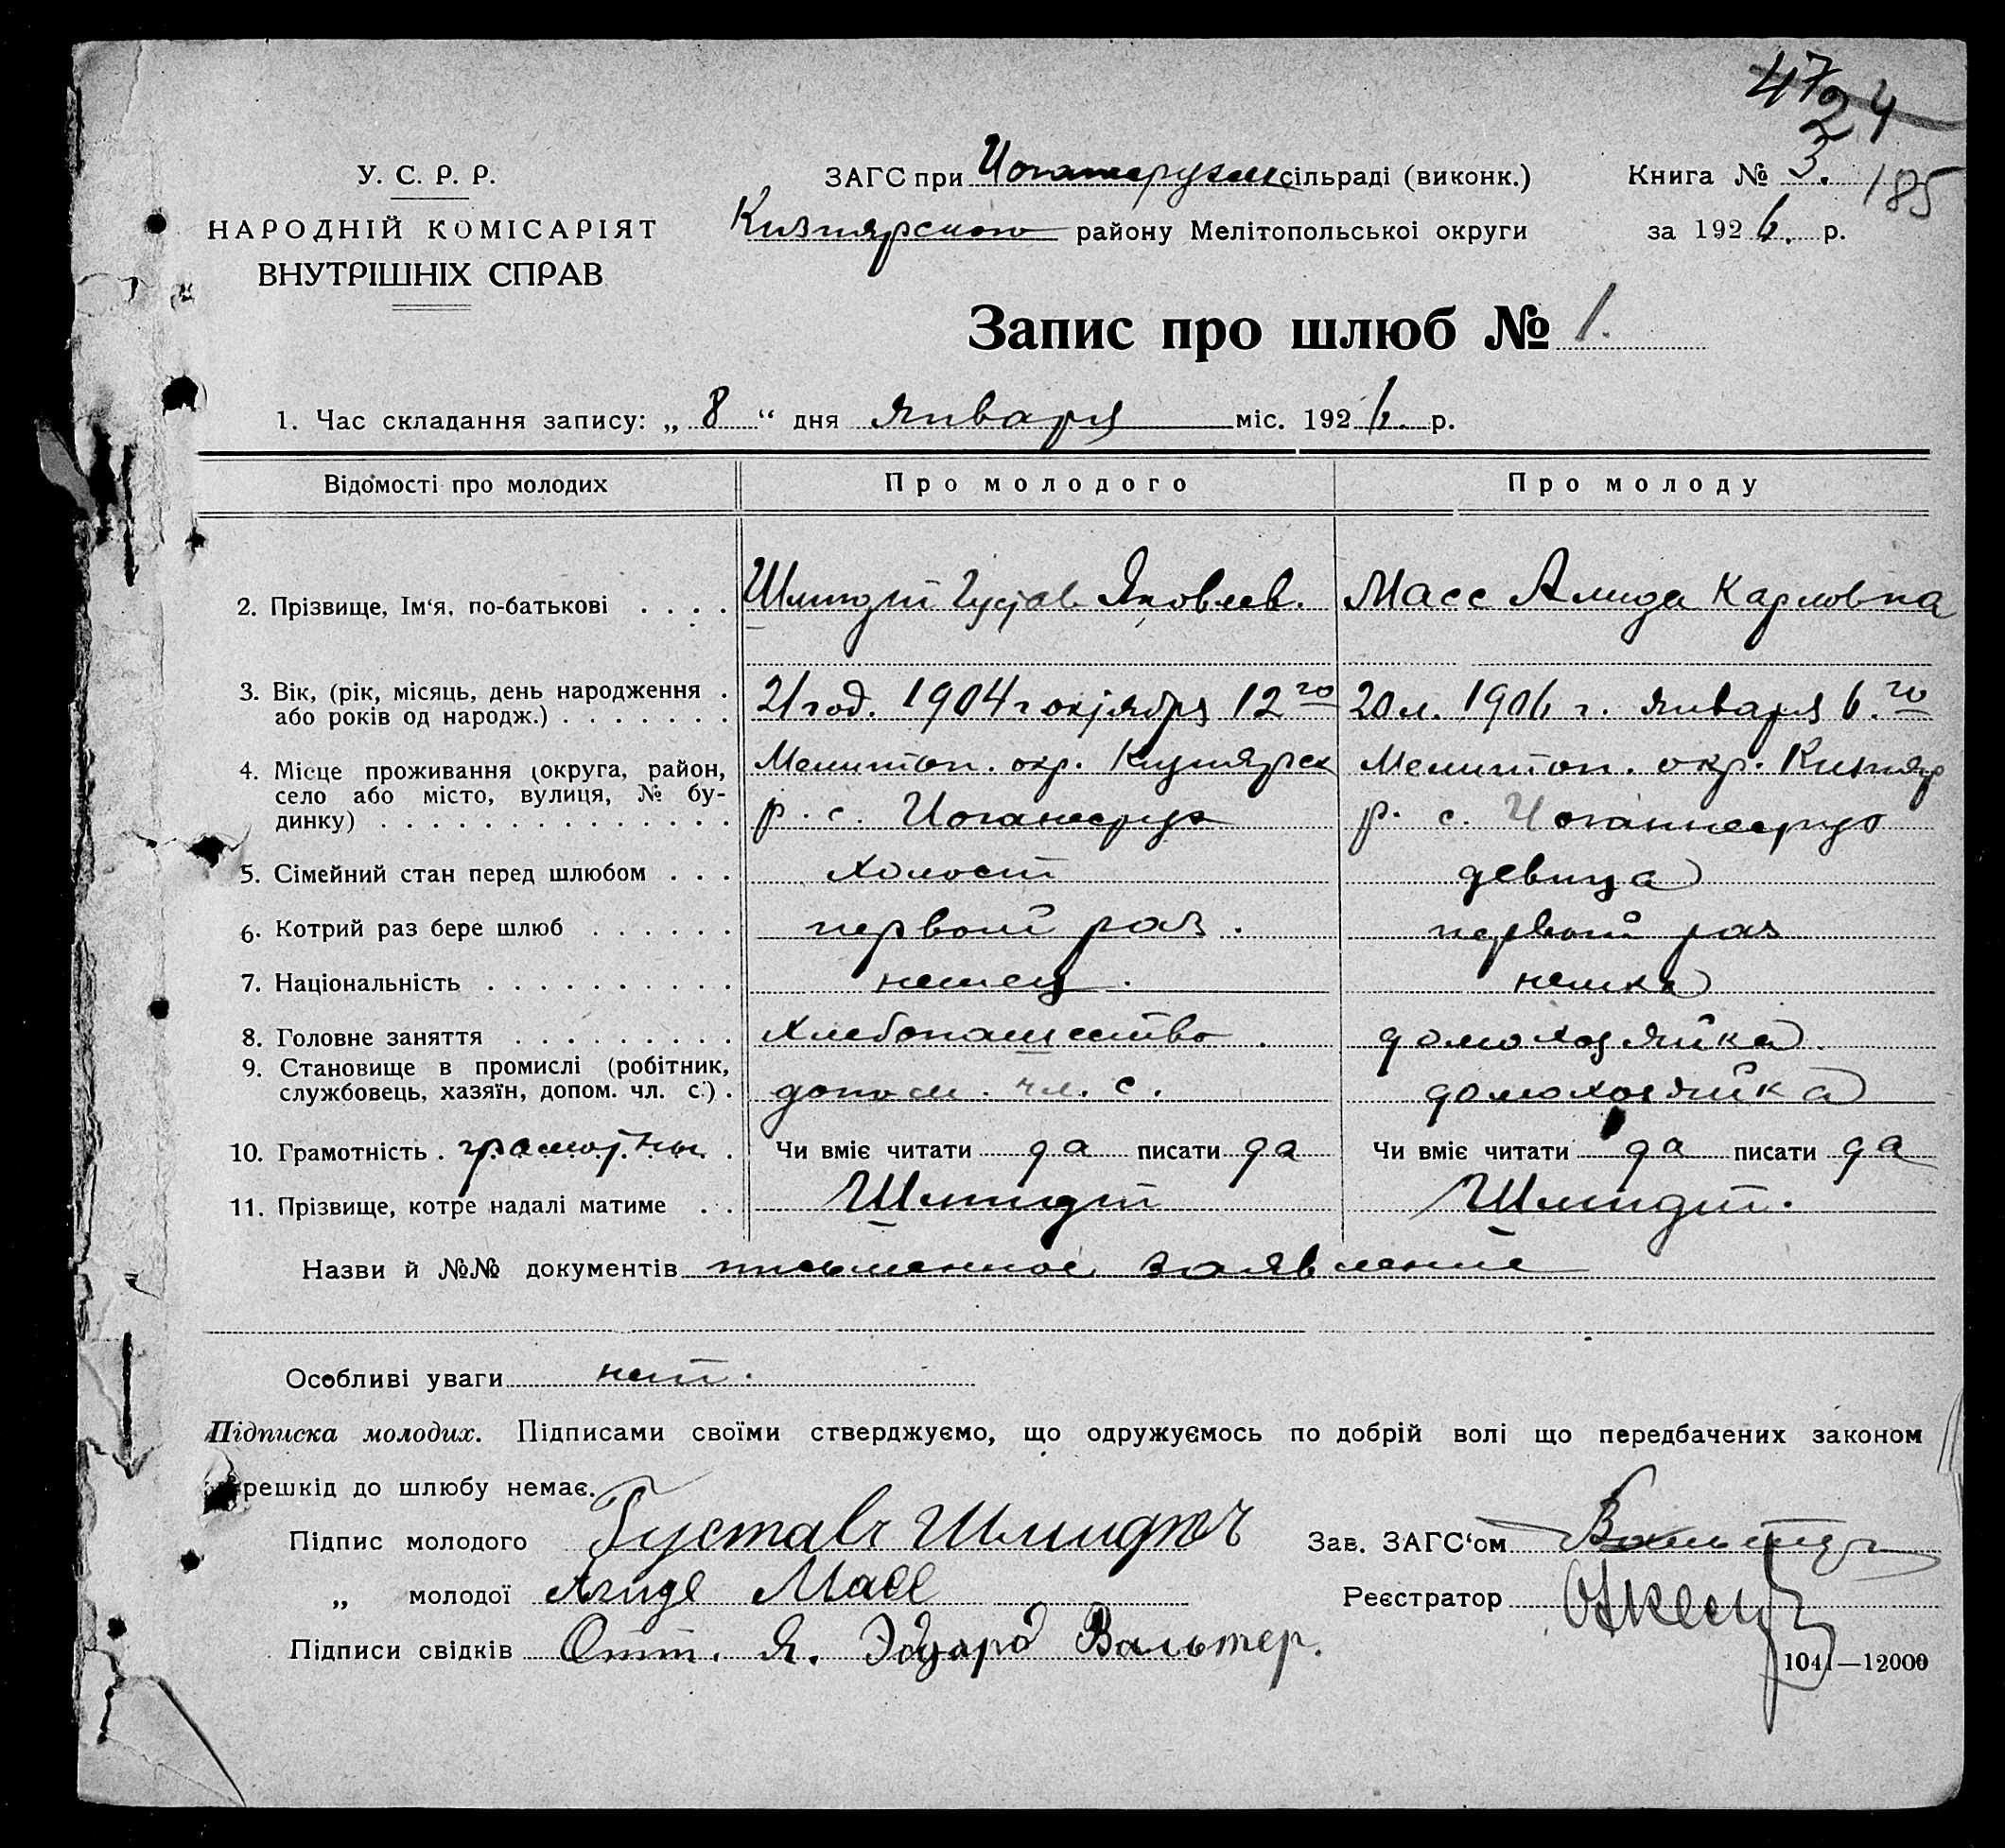 47 24
2
У. С. Р. Р.
НАРОДНІЙ КОМІСАРІЯТ
ВНУТРІШНІХ СПРАВ
ЗАГС при Иоганесрузск сільраді (виконк.)
Кизиярского району Мелітопольської округи
Книга № 3. 185
за 1926. р.
Запис про шлюб № 1.
1. Час складання запису: „ 8 “ дня января міс. 1926. р.
Відомості про молодих Про молодого Про молоду
2. Прізвище, Ім‘я, по-батькові . . . . Шмидт Густав Яковлев. Масс Алида Карловна
3. Вік, (рік, місяць, день народження . 21 год. 1904 г октября 12го 20 л. 1906 г. января 6.го
або років од народж.) . . . . . . .
4. Місце проживання (округа, район, Мелитоп. окр. Кизиярск Мелитоп. окр. Кизияр
село або місто, вулиця, № бу-
динку) . . . . . . . . . . . . . . р. с. Иоганесрух р. с. Иоганнесрув
5. Сімейний стан перед шлюбом . . . холост девица
6. Котрий раз бере шлюб . . . . . . первый раз. первый раз
7. Національність . . . . . . . . . . немец. немка
8. Головне заняття . . . . . . . . . хлебопашество. домохозяйка.
9. Становище в промислі (робітник,
службовець, хазяїн, допом. чл. с.) . допом. чл. с. домохозяйка
10. Грамотність . грамотны. . Чи вміє читати да писати да Чи вміє читати да писати да
11. Прізвище, котре надалі матиме . . Шмидт Шмидт.
Назви й №№ документів письменное заявление
Особливі уваги нет.
Підписка молодих. Підписами своїми стверджуємо, що одружуємось по добрій волі що передбачених законом
решкід до шлюбу немає.
Підпис молодого Густавъ Шмидтъ Зав. ЗАГС‘ом Вальтер
„ молодої Алиде Масс Реєстратор
Підписи свідків Отт. Я. Эдуард Вальтер.
1041—12000